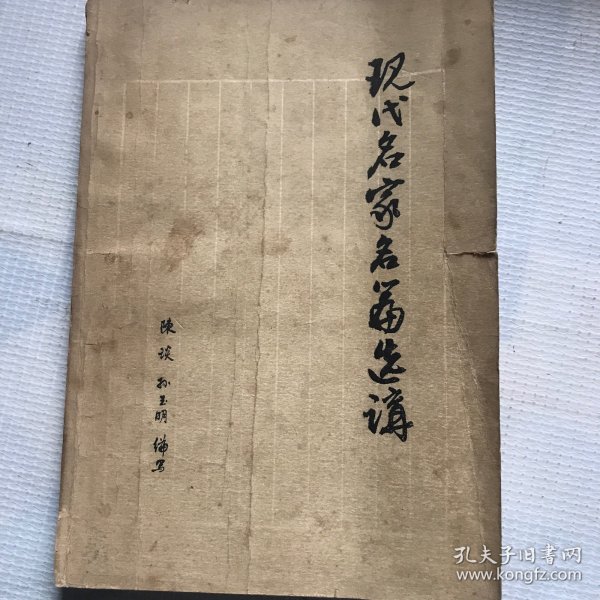 现代名家名篇选講
陳琰 孙玉明 编写
孔夫子旧书网
www.kongfz.com